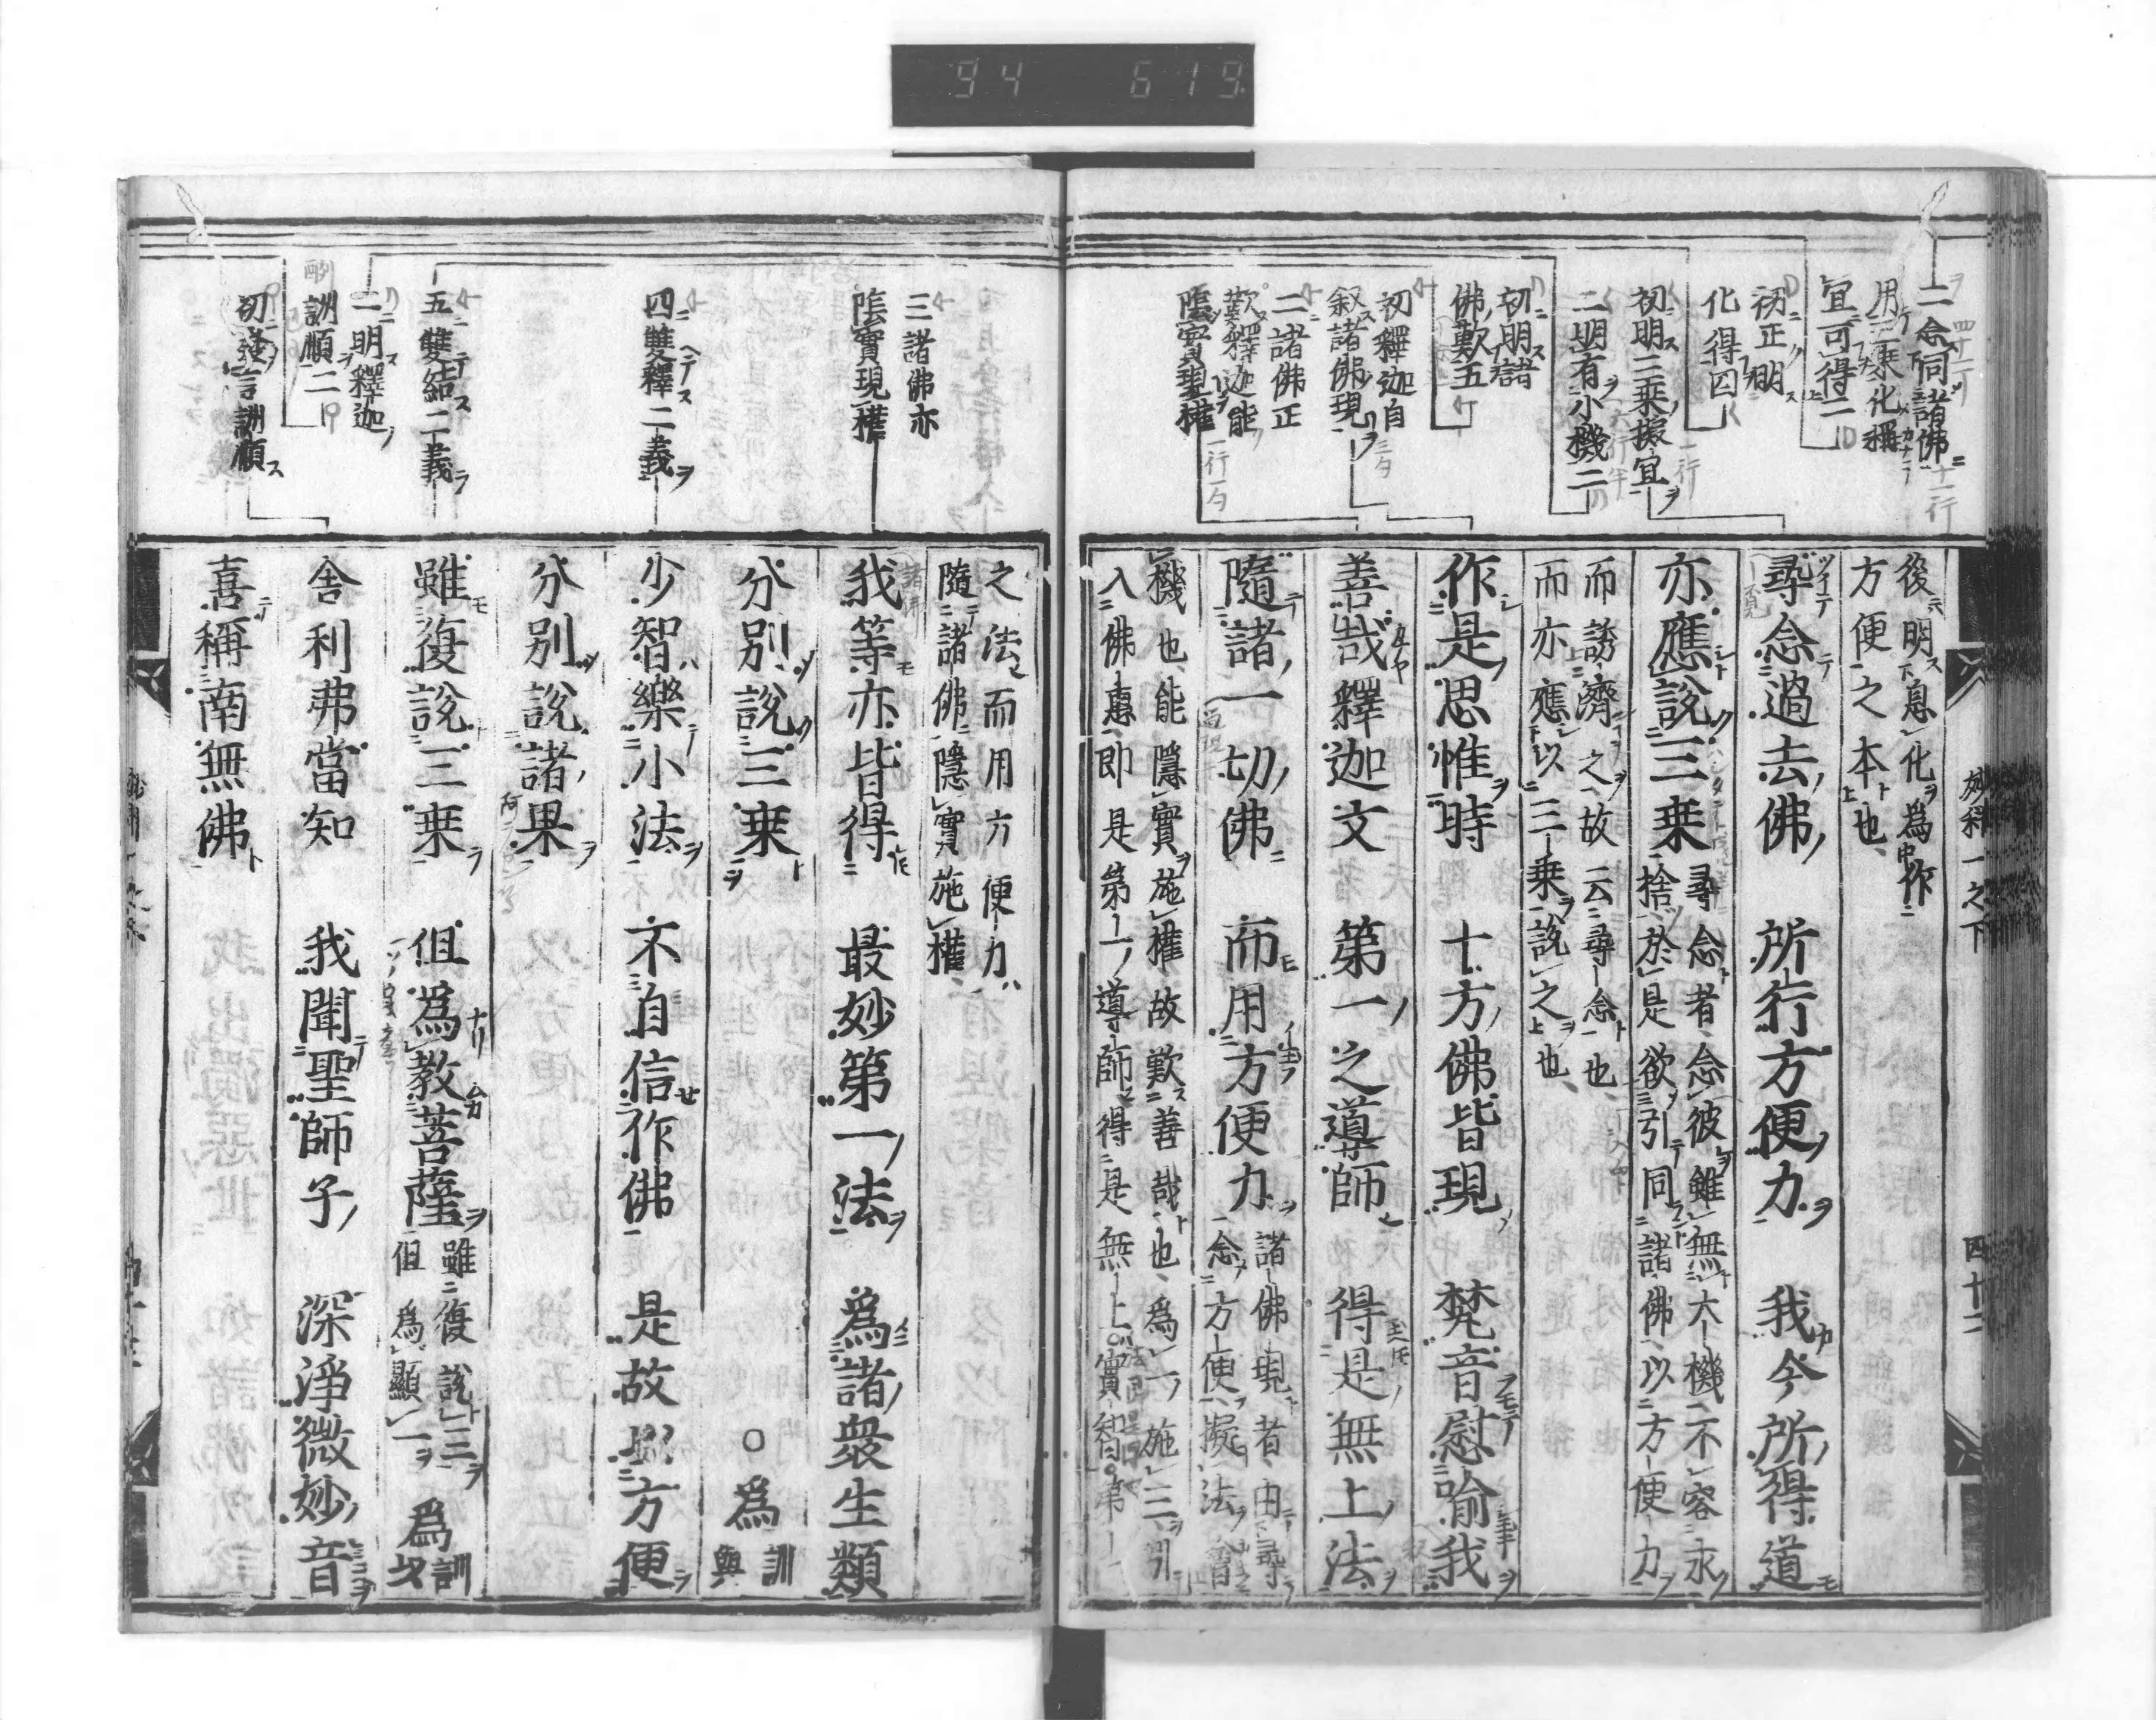 94 619
二念同諸佛
用三乘化稱
宜可得二
初正明
化得四
初明三乗擬宜
二明有小機二
初明諸
佛歎五
初釋迦自
叙諸佛現
二諸佛正
歎釋迦能
隂實現權
後明息化為作
方便之本也
尋念過去佛 所行方便力 我今所得道
亦應說三乗
尋念者念彼雖無大機不容永
捨於是欲引同諸佛以方便力
而誘濟之故云尋念也
而亦應以三乗說之也
作是思惟時 十方佛皆現 梵音慰喻我
善哉釋迦文 第一之導師 得是無上法
隨諸一切佛 而用方便力
諸佛現者由尋
念方便擬法會
機也能隱實施權故歎善哉也為一施三引
入佛惠即是第一導師得是無上實智第一
妙科一之下 四十二
三諸佛亦
隂實現權
四雙釋二義
五雙結二義
二明釋迦
詶順二
初發言詶順
之法而用方便力
隨諸佛隱實施權
我等亦皆得 最妙第一法 為諸衆生類
分別說三乗 ○為訓與
少智樂小法 不自信作佛 是故以方便
分別說諸果
雖復說三乗 但為教菩薩
雖復說三
但為顯一
為訓
舎利弗當知 我聞聖師子 深淨微妙音
喜稱南無佛